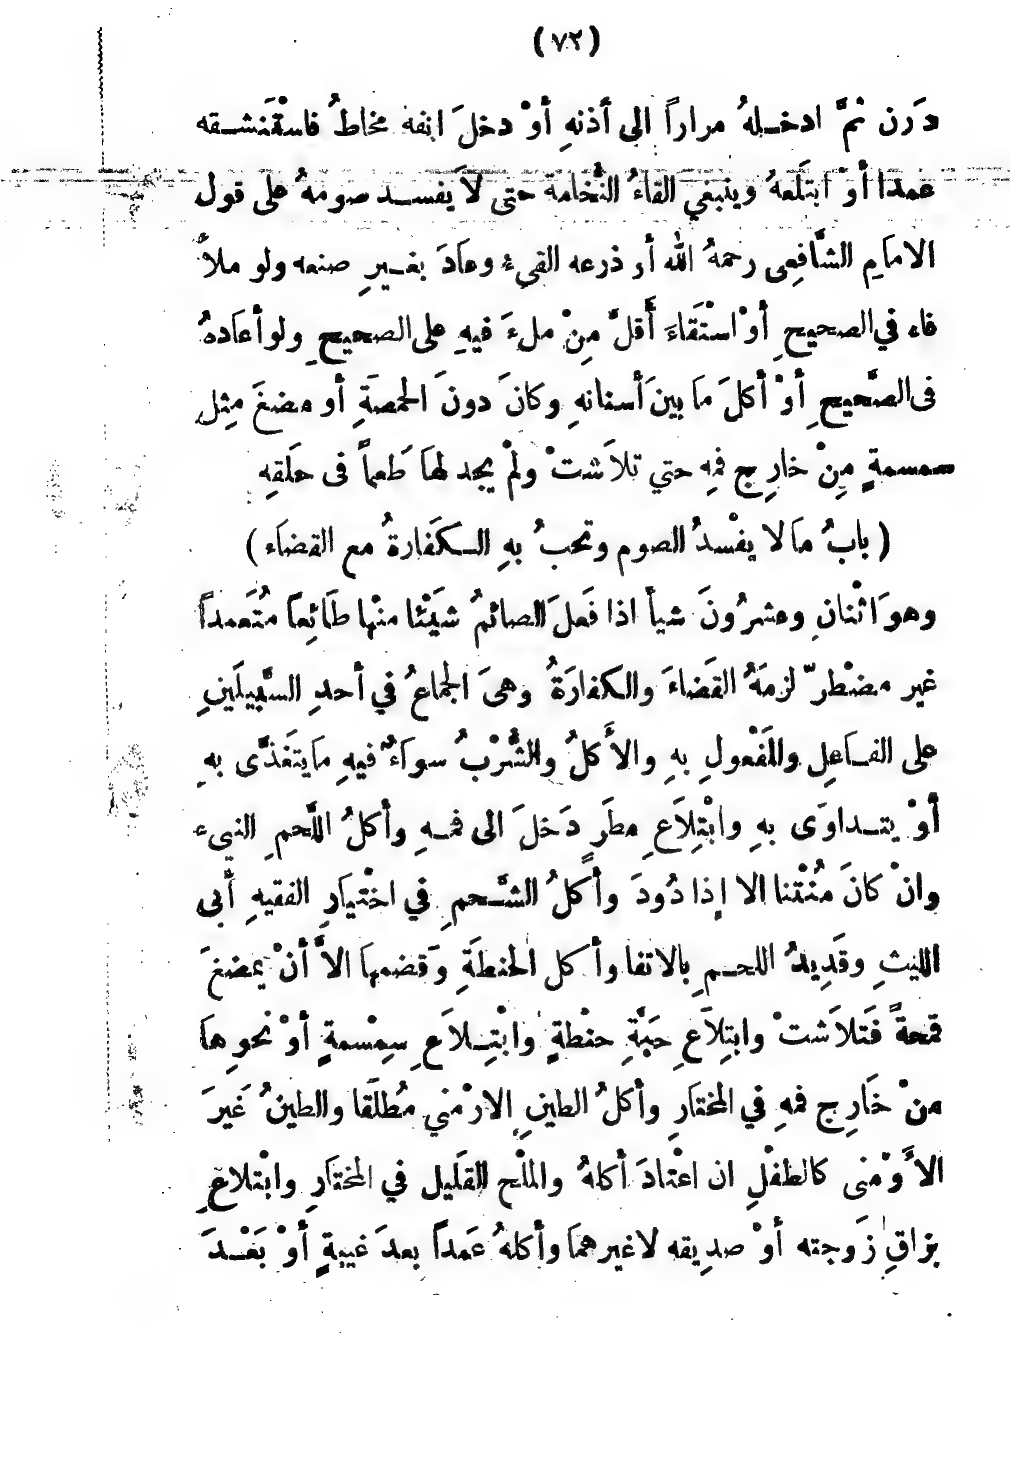 (٧٢)
دَرن ثمَّ ادخـلهُ مراراً الى أذنهِ أوْ دخلَ انفه مخاطُ فاستَنشـقه
عمدا أوْ ابتلَعهُ وينبغي القاءُ النُّخامة حتى لاَ يَفسـد صومهُ على قول
الامامِ الشَّافِعى رحمهُ الله أو ذرعه القيءُ وعادَ بغـيرِ صنعه ولو ملأَ
فاه في الصحيحِ أوْ استْقَاءَ أَقلَّ مِنْ ملءَ فيهِ على الصحيحِ ولو أعادهُ
فى الصَّحيحِ أوْ أكلَ ما بينَ أسنانهِ وكانَ دونَ الحمصةِ أو مضغَ مِثل
سمسمةٍ مِنْ خارِج فمِه حتي تلاَشتْ ولمْ يجد لها طَعماً فى حلَقهِ
(بابُ مَا لا يفْسدُ الصوم وتجبُ بهِ الـكفَارةُ مع القضَاء)
وهوَ اثْنانِ وعشرُونَ شيأ اذا فَعلَ الصائمُ شيَئْا منْها طَائِعاً مُتَعمداً
غير مضْطرّ لزمَهُ القَضَاءَ والكفارَةُ وهىَ الجماعُ في أحدِ السَّبيلَينِ
على الفـاعلِ والمَفْعولِ بهِ والأكلُ والشُّرْبُ سواءٌ فيهِ ما يَتَغذَّى بهِ
أوْ يتـداوَى بهِ وابْتِلاَعِ مطَرٍ دَخلَ الى فمـهِ وأكلُ اللَّحمِ النيء
وانْ كانَ مُنْتنا الا إذا دُودَ وأكلُ الشَّـحمِ في اخْتيارِ الفقيهِ أَبى
الليثِ وقَدِيدُ اللحـمِ بالاتفا وأكل الحنطَةِ وَقضمها الاَّ أنْ يمضغَ
قمحةً فَتلاَشتْ وابتِلاَعِ حَبَّةِ حنْطةٍ وابْتـِلاَعِ سِمْسمةٍ أوْ نحوِها
منْ خَارِج فمهِ في المختارِ وأكلُ الطينِ الارْمني مُطلَقا والطينُ غَيرَ
الأوْمْنى كالطفْلِ ان اعْتادَ أكلهُ والملْح القَليل في المختارِ وابْتلاعِ
بزاقِ زَوجته أوْ صديقه لا غيرهما وأكلهُ عَمداً بعدَ غيبةٍ أوْ بَعْـدَ